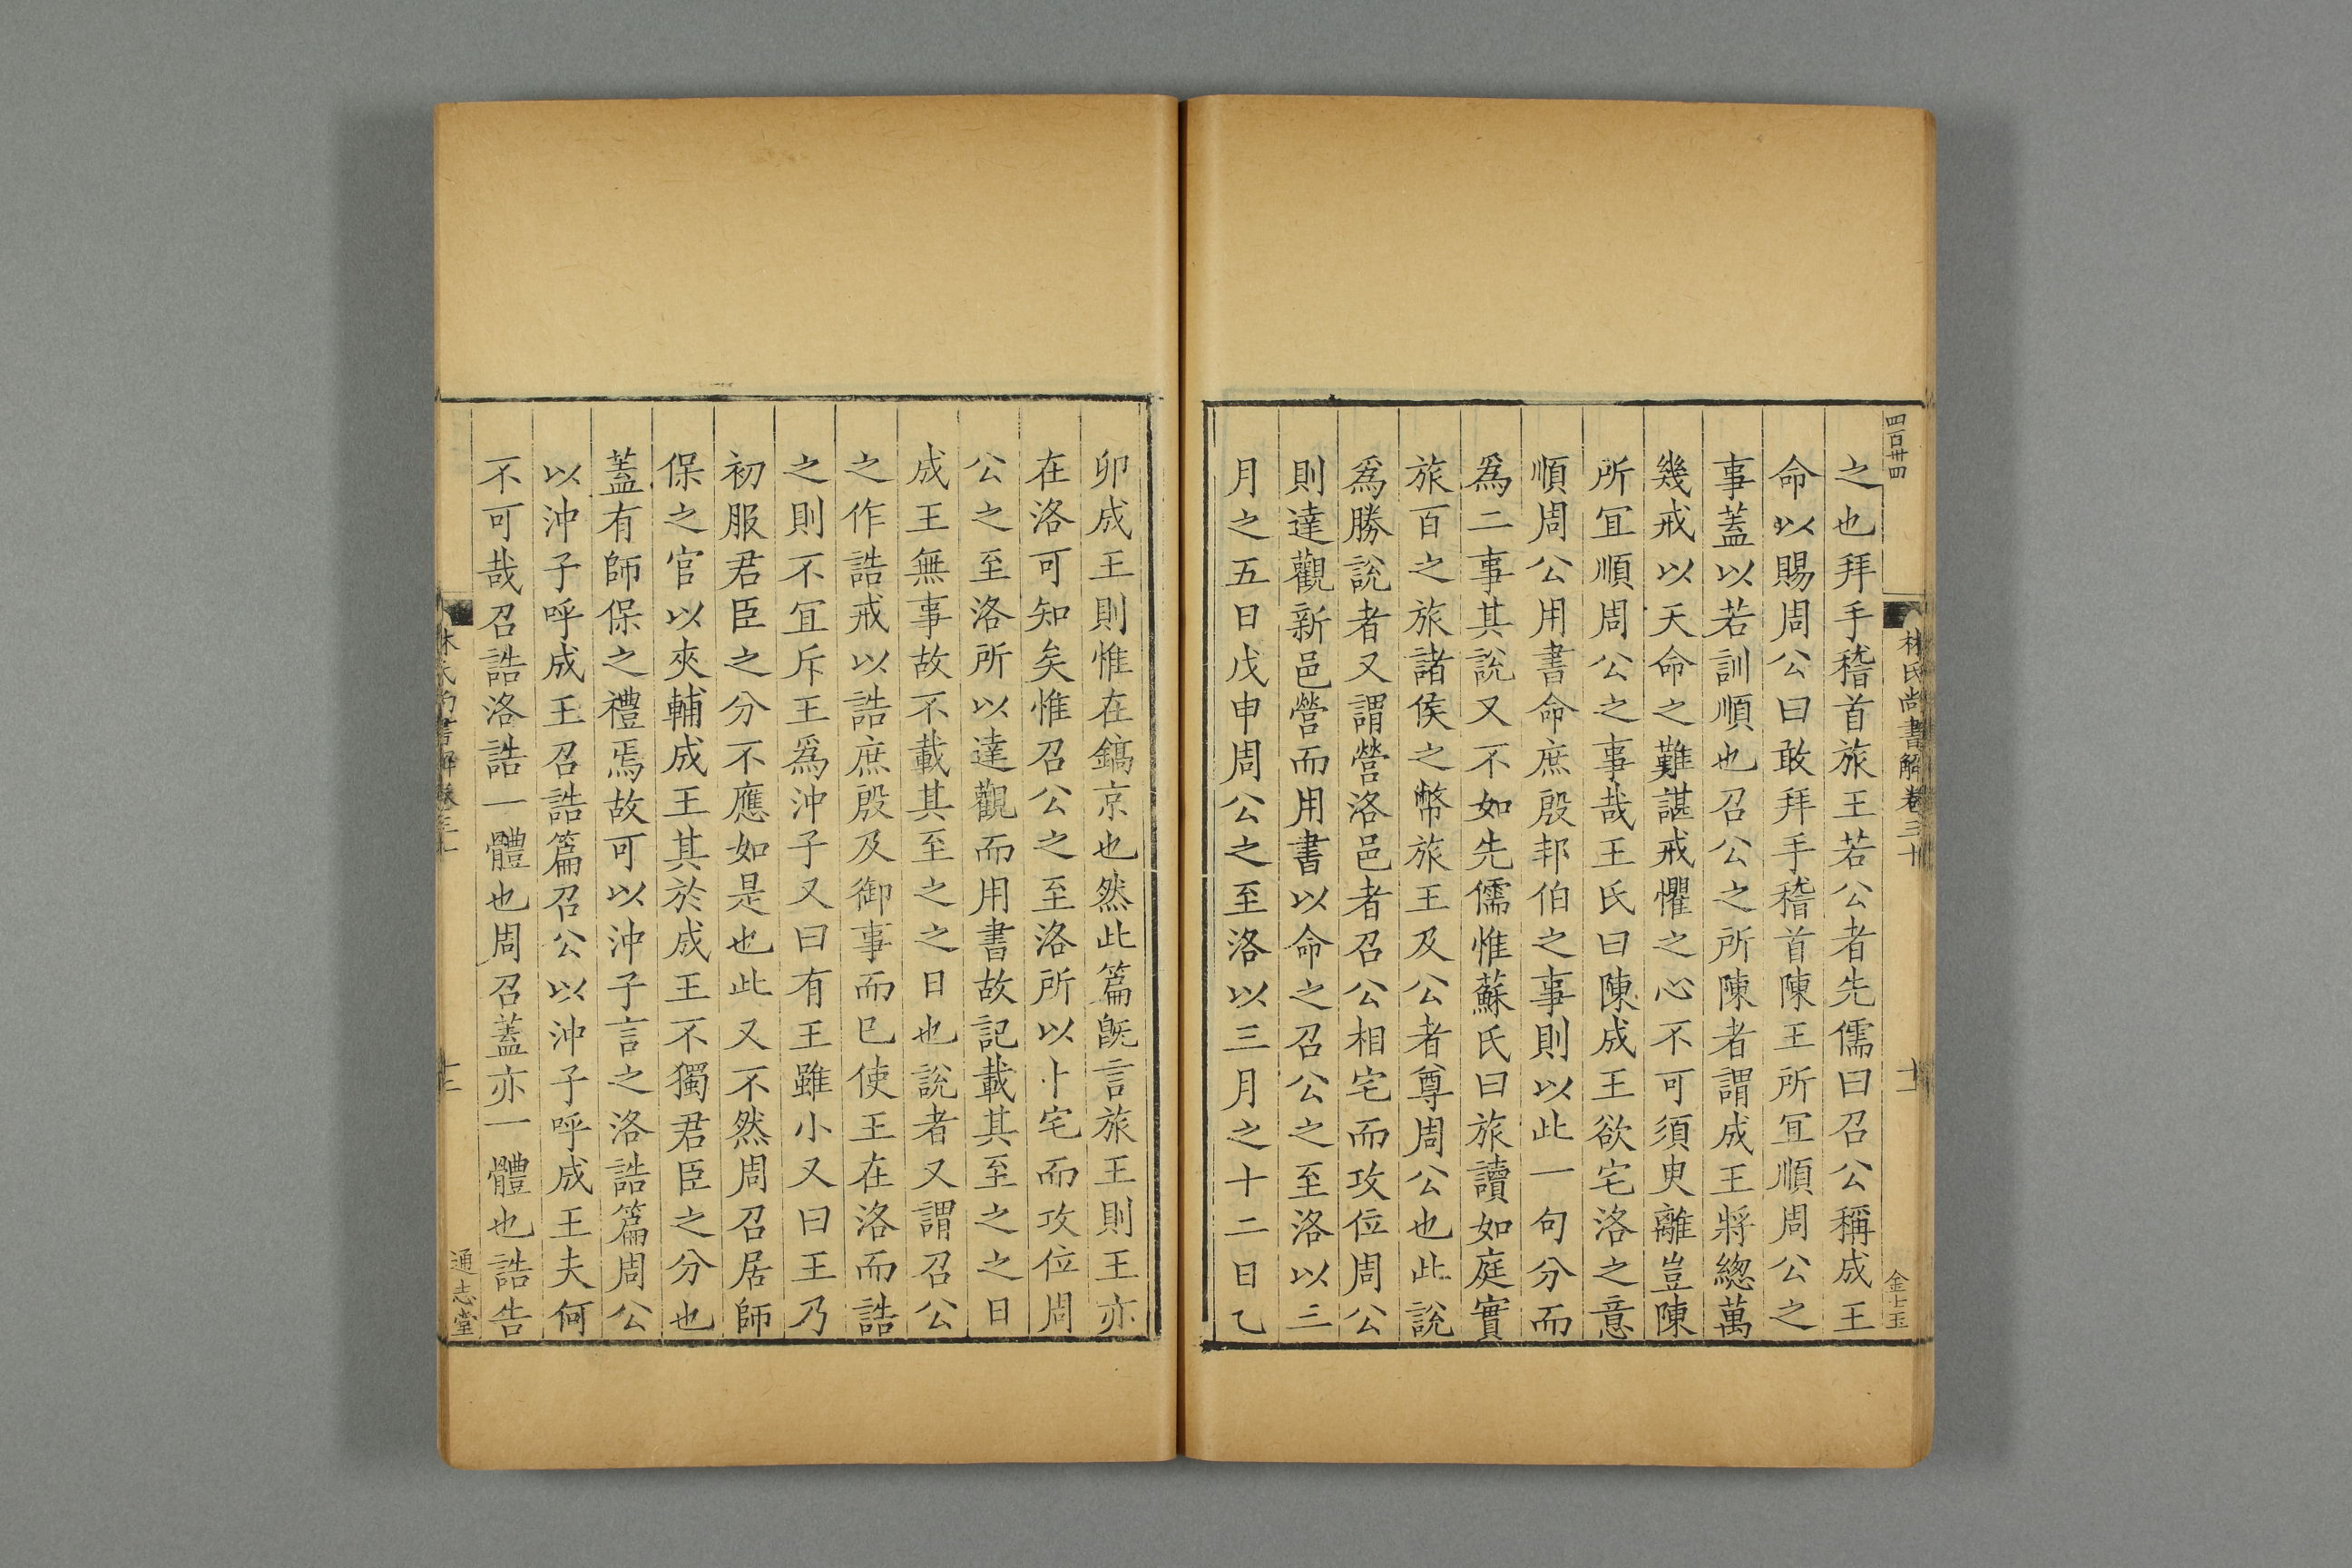 四百卅四
林氏尚書解卷三十
十一
金士玉
之也拜手稽首旅王若公者先儒曰召公稱成王
命以賜周公曰敢拜手稽首陳王所宜順周公之
事蓋以若訓順也召公之所陳者謂成王將總萬
幾戒以天命之難諶戒懼之心不可須臾離豈陳
所宜順周公之事哉王氏曰陳成王欲宅洛之意
順周公用書命庶殷邦伯之事則以此一句分而
為二事其說又不如先儒惟蘇氏曰旅讀如庭實
旅百之旅諸侯之幣旅王及公者尊周公也此說
爲勝說者又謂營洛邑者召公相宅而攻位周公
則達觀新邑營而用書以命之召公之至洛以三
月之五日戊申周公之至洛以三月之十二日乙
卯成王則惟在鎬京也然此篇旣言旅王則王亦
在洛可知矣惟召公之至洛所以卜宅而攻位周
公之至洛所以達觀而用書故記載其至之之日
成王無事故不載其至之之日也說者又謂召公
之作誥戒以誥庶殷及御事而已使王在洛而誥
之則不宜斥王爲沖子又曰有王雖小又曰王乃
初服君臣之分不應如是也此又不然周召居師
保之官以夾輔成王其於成王不獨君臣之分也
蓋有師保之禮焉故可以沖子言之洛誥篇周公
以沖子呼成王召誥篇召公以沖子呼成王夫何
不可哉召誥洛誥一體也周召蓋亦一體也誥告
通志堂